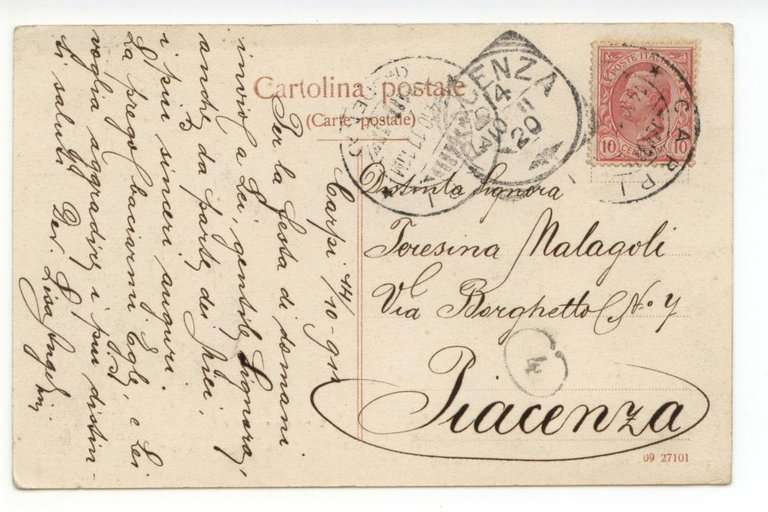 Cartolina postale
(Carte postale)
POSTE ITALIANE
10 CENTESIMI 10
CARPI
Carpi 14/10-911
Per la festa di domani
invio a Lei, gentile Signora,
anche da parte dei miei,
i più sinceri auguri.
La prego baciarmi Egle, e Lei
voglia aggradire i più distin-
ti saluti
Dev.
Distinta Signora
Teresina Malagoli
Via Borghetto No 7
Piacenza
09 27101